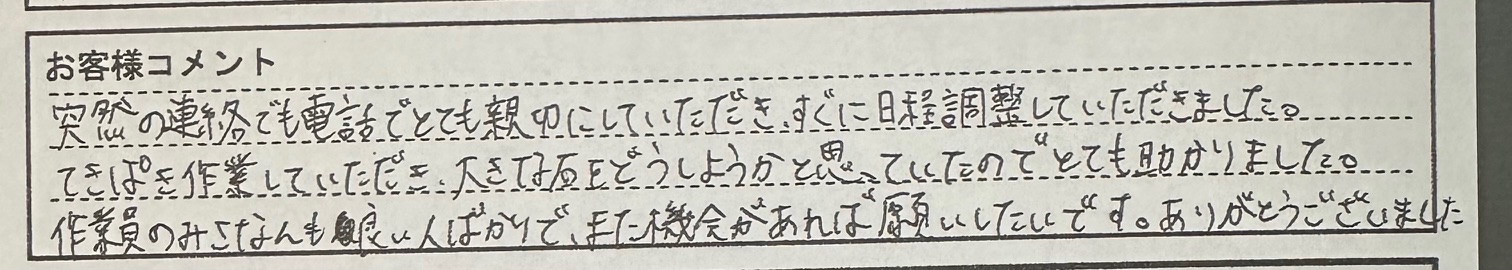 お客様コメント
突然の連絡でも電話でとても親切にしていただき、すぐに日程調整していただきました。
てきぱき作業していただき、大きな石をどうしようかと思っていたのでとても助かりました。
作業員のみさなんも良い人ばかりで、また機会があれば願いしたいです。ありがとうございました